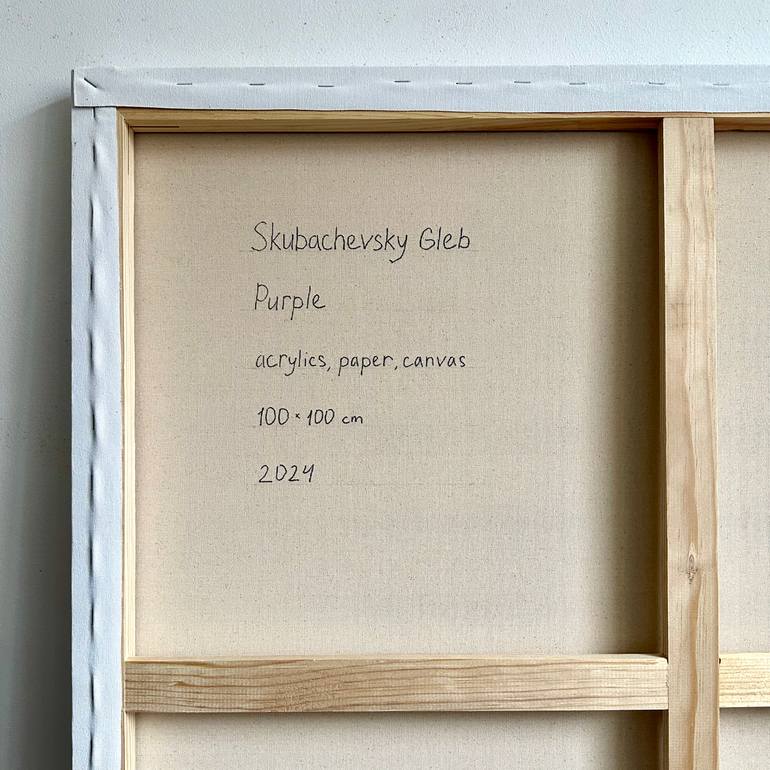 Skubachevsky Gleb
Purple
acrylics, paper, canvas
100 × 100 cm
2024